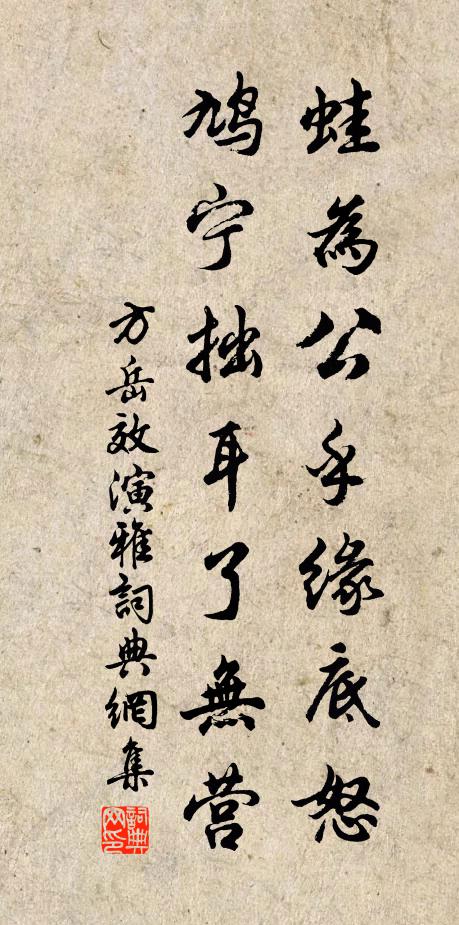 蛙為公乎緣底怒
鳩宁拙耳了無営
方岳效演雅詞典網集
詞典网印